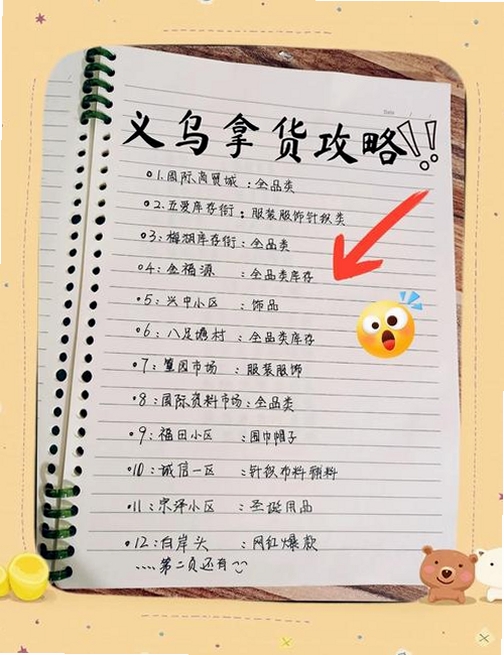 义乌拿货攻略!!
Date / /
1.国际商贸城:全品类
2.五爱库存街:服装服饰针织类
3:梅湖库存街:全品类
4:金福源:全品类库存
5:兴中小区:饰品
6:八足塘村:全品类库存
7:篁园市场:服装服饰
8:国际资料市场:全品类
9:福田小区:围巾帽子
10:诚信一区:针织布料预料
11:宗泽小区:圣诞用品
12:白岸头:网红爆款
....第二页还有